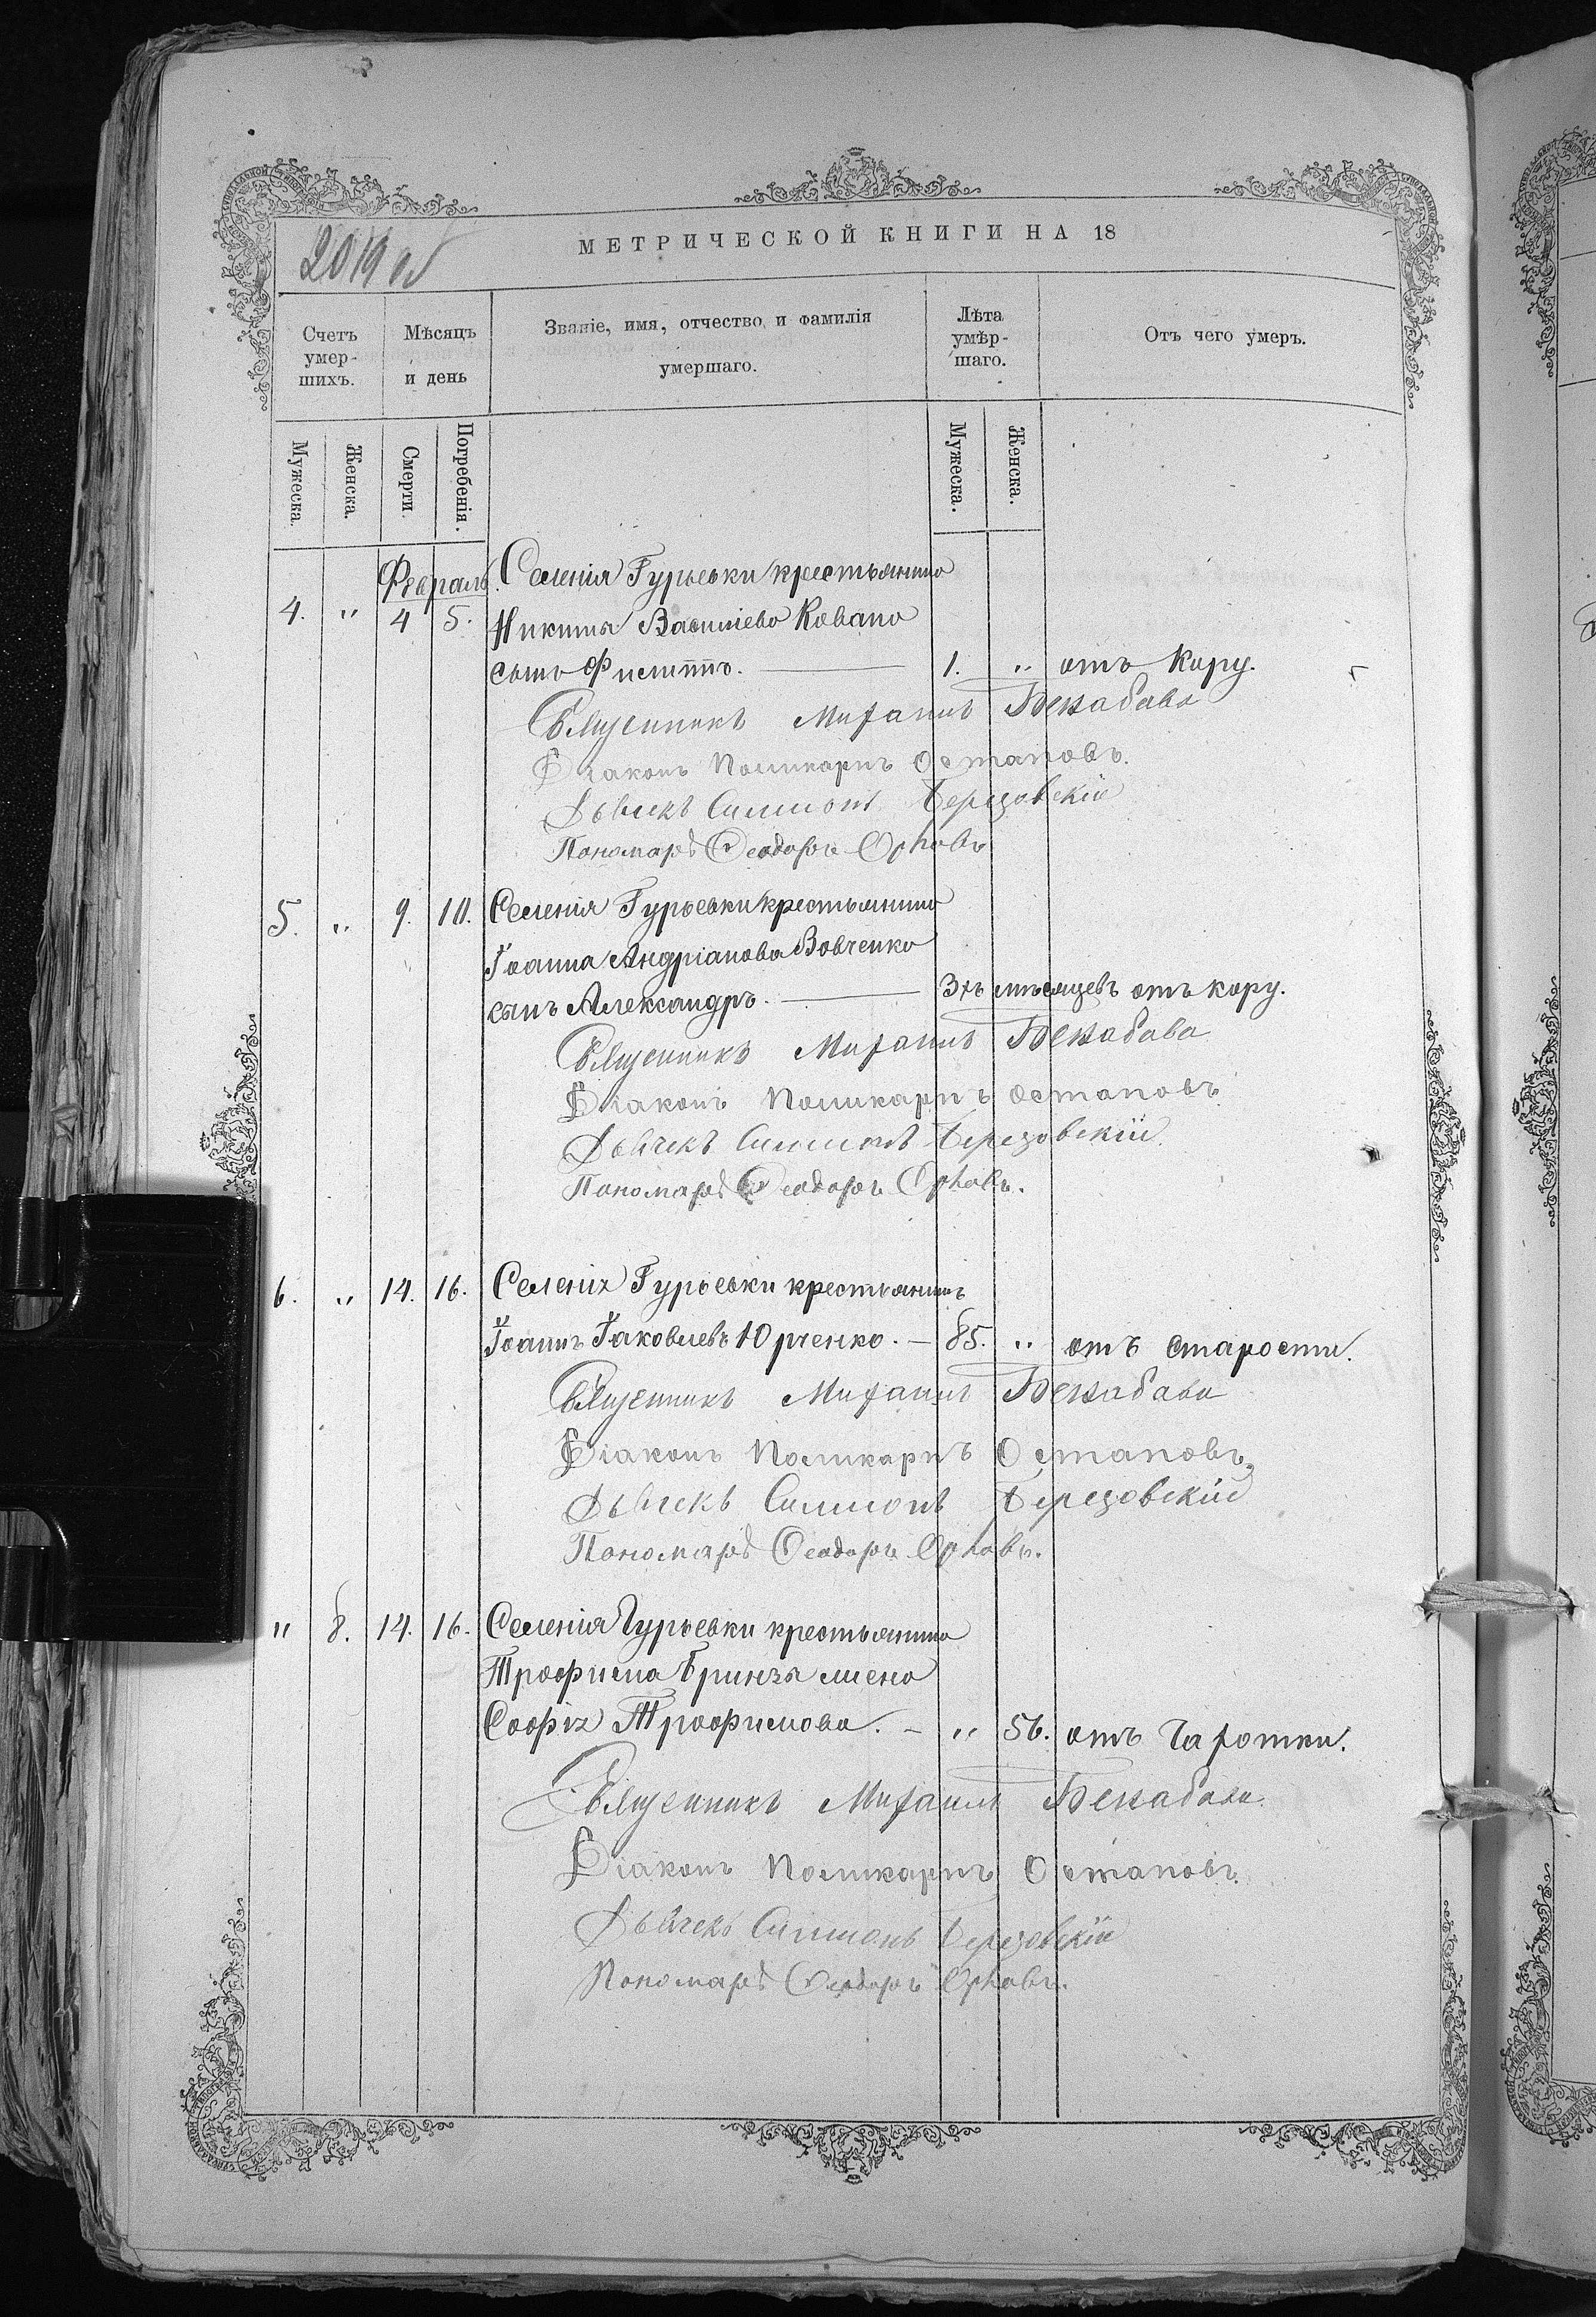 2019 об
МЕТРИЧЕСКОЙ КНИГИ НА 18
Счетъ умер-шихъ.
Мѣсяцъ и день
Званіе, имя, отчество и фамилія умершаго.
Лѣта умѣр-шаго.
Отъ чего умеръ.
Мужеска.
Женска.
Смерти.
Погребенія.
Мужеска.
Женска.
Февраль. Селенія Гурьевки крестьянина
4. " 4 5. Никиты Василіева Кована
сынъ Филиппъ. 1. " отъ кору.
Священникъ Михаилъ
Діаконъ Поликарпъ Остаповъ.
Дьячекъ Симеонъ Березовскій
Пономарь Ѳеодоръ Орловъ
5. " 9. 10. Селенія Гурьевки крестьянина
Іоанна Андріанова Вовченко
сынъ Александръ. 3хъ мѣсяцевъ отъ кору.
Священникъ Михаилъ
Діаконъ Поликарпъ Остаповъ
Дьячекъ Симеонъ Березовскій
Пономарь Ѳеодоръ Орловъ.
6. " 14. 16. Селенія Гурьевки крестьянинъ
Іоаннъ Іаковлевъ Юрченко. — 85. " отъ старости.
Священникъ Михаилъ
Діаконъ Поликарпъ Остаповъ.
Дьячекъ Симеонъ Березовскій
Пономарь Ѳеодоръ Орловъ.
" 8. 14. 16. Селенія Гурьевки крестьянина
Трофима Бринзя жена
Софія Трофимова. — " 56. отъ чахотки.
Священникъ Михаилъ
Діаконъ Поликарпъ Остаповъ.
Дьячекъ Симеонъ Березовскій
Пономарь Ѳеодоръ Орловъ.